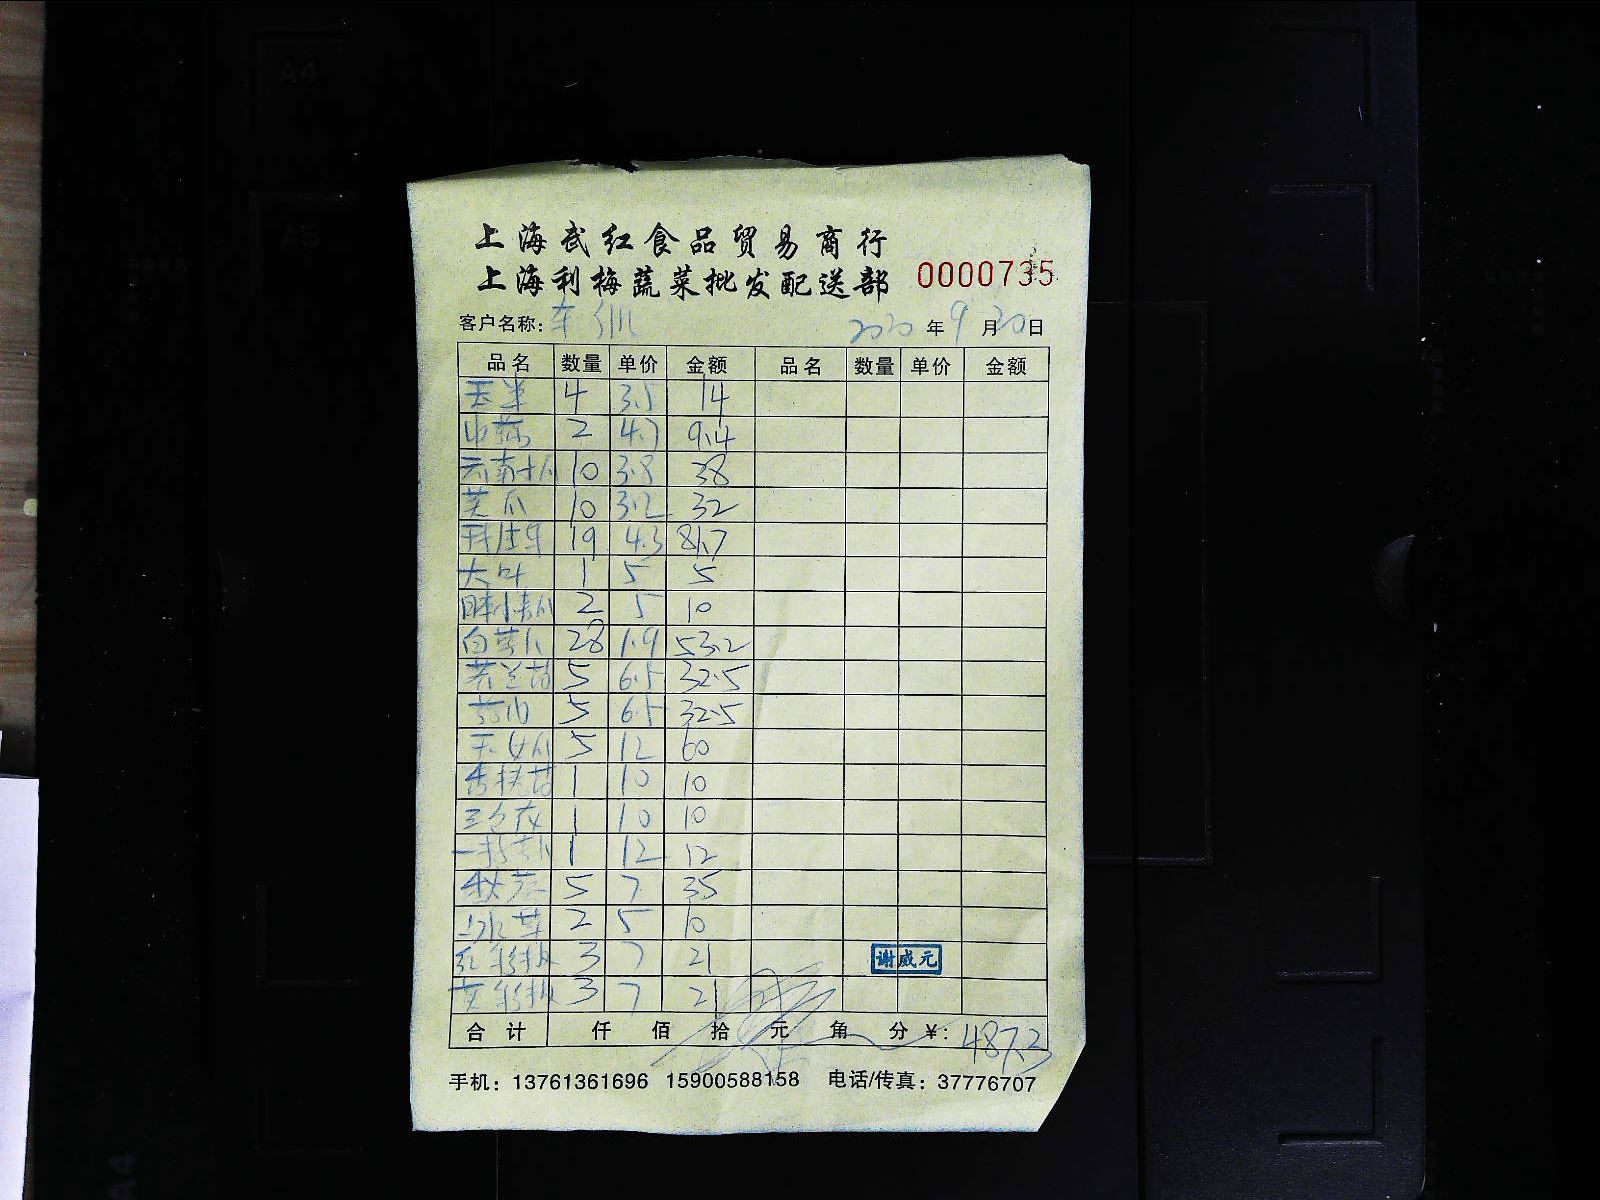 上海武红食品贸易商行
上海利梅蔬菜批发配送部 0000735
客户名称: 2020年9月20日
品名 数量 单价 金额 品名 数量 单价 金额
玉米 4 3.5 14
2 4.7 9.4
云南小瓜 10 3.8 38
黄瓜 10 3.2 32
19 4.3 81.7
大叶 1 5 5
日本小青瓜 2 5 10
白萝卜 28 1.9 53.2
芥兰苗 5 6.5 32.5
5 6.5 32.5
5 12 60
1 10 10
三色花 1 10 10
1 12 12
秋葵 5 7 35
2 5 10
红彩椒 3 7 21
谢威元
黄彩椒 3 7 21
合计 仟 佰 拾 元 角 分 ¥: 487.3
手机: 13761361696 15900588158 电话/传真: 37776707